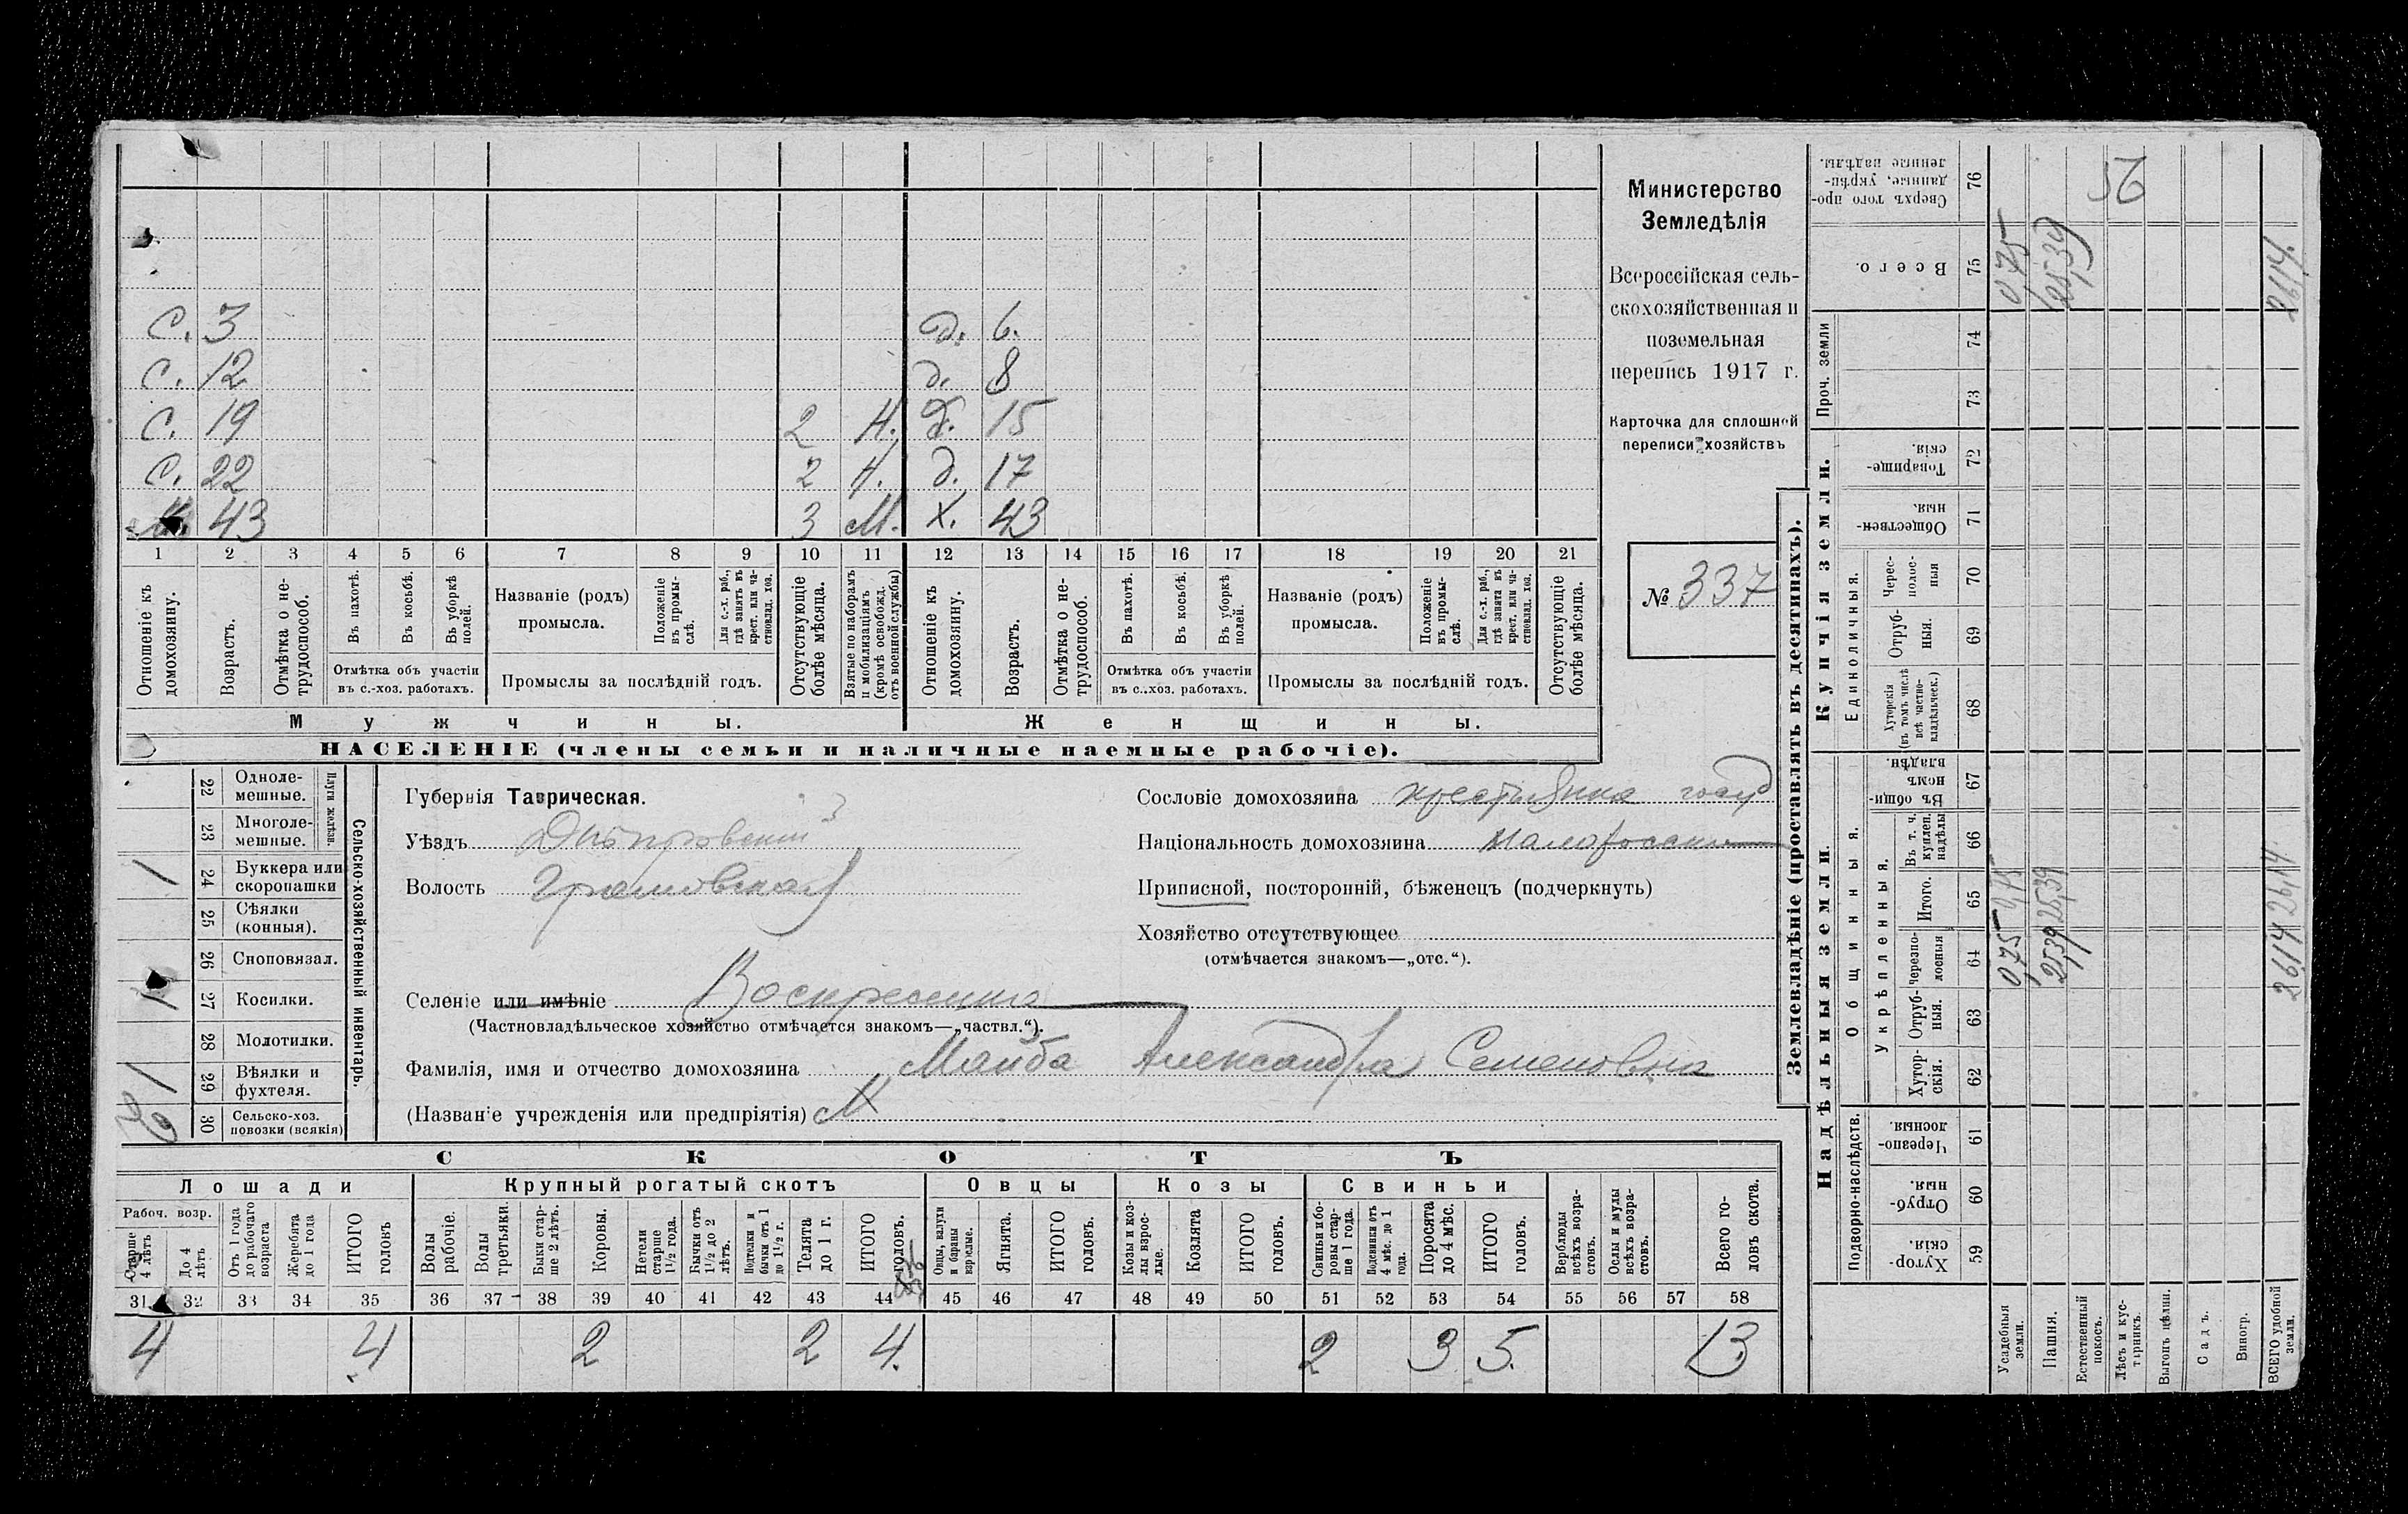 Министерство
Земледѣлія
Всероссійская сель-
скохозяйственная и
поземельная
перепись 1917 г.
Карточка для сплошной
переписи хозяйствъ
№ 337
С. 3 д. 6.
С. 12 д. 8
С. 19 2 Н. д. 15
С. 22 2 Н. д. 17
М. 43 3 М. Х. 43
1 2 3 4 5 6 7 8 9 10 11 12 13 14 15 16 17 18 19 20 21
Отношеніе къ домохозяину.
Возрастъ.
Отмѣтка о не-трудоспособ.
Въ пахотѣ.
Въ косьбѣ.
Въ уборкѣ полей.
Отмѣтка объ участіи
въ с.-хоз. работахъ.
Названіе (родъ)
промысла.
Положеніе въ промы-слѣ.
Для с.-х. раб., гдѣ занятъ въ крест. или ча-стновлад. хоз.
Промыслы за послѣдній годъ.
Отсутствующіе болѣе мѣсяца.
Взятые по наборамъ и мобилизаціямъ (кромѣ освобожд. отъ военной службы)
Отношеніе къ домохозяину.
Возрастъ.
Отмѣтка о не-трудоспособ.
Въ пахотѣ.
Въ косьбѣ.
Въ уборкѣ полей.
Отмѣтка объ участіи
въ с.-хоз. работахъ.
Названіе (родъ)
промысла.
Положеніе въ промы-слѣ.
Для с.-х. раб., гдѣ занята въ крест. или ча-стновлад. хоз.
Промыслы за послѣдній годъ.
Отсутствующіе болѣе мѣсяца.
Мужчины. Женщины.
НАСЕЛЕНІЕ (члены семьи и наличные наемные рабочіе).
Сельско-хозяйственный инвентарь.
Плуги желѣзн.
22 Одноле-мешные.
23 Многоле-мешные.
1 24 Буккера или скоропашки
25 Сѣялки (конныя).
26 Сноповязал.
1 27 Косилки.
28 Молотилки.
1 29 Вѣялки и фухтеля.
2 30 Сельско-хоз. повозки (всякія)
Губернія Таврическая.
Уѣздъ Днѣпровскій
Волость Громовская
Селеніе или имѣніе Воскресенка
(Частновладѣльческое хозяйство отмѣчается знакомъ—„частвл.“).
Фамилія, имя и отчество домохозяина Майба Александра Семеновна
(Названіе учрежденія или предпріятія) М
Сословіе домохозяина крестьянка госуд
Національность домохозяина малоросс
Приписной, посторонній, бѣженецъ (подчеркнуть)
Хозяйство отсутствующее
(отмѣчается знакомъ—„отс.“).
СКОТЪ
Лошади Крупный рогатый скотъ Овцы Козы Свиньи
Рабоч. возр.
Старше 4 лѣтъ
До 4 лѣтъ
Отъ 1 года до рабочаго возраста
Жеребята до 1 года
ИТОГО головъ
Волы рабочіе.
Волы третьяки.
Быки стар-ше 2 лѣтъ.
Коровы.
Нетели старше 1½ года.
Бычки отъ 1½ до 2 лѣтъ.
Подтелки и бычки отъ 1 до 1½ г.
Телята до 1 г.
ИТОГО головъ.
Овцы, валухи и бараны взрослые.
Ягнята.
ИТОГО головъ.
Козы и коз-лы взрос-лые.
Козлята
ИТОГО головъ.
Свиньи и бо-ровы стар-ше 1 года.
Подсвинки отъ 4 мѣс. до 1 года.
Поросята до 4 мѣс.
ИТОГО головъ.
Верблюды всѣхъ возра-стовъ.
Ослы и мулы всѣхъ возра-стовъ.
Всего го-ловъ скота.
31 32 33 34 35 36 37 38 39 40 41 42 43 44 45 46 47 48 49 50 51 52 53 54 55 56 57 58
4 4 2 2 4. 2 3 5. 13
Землевладѣніе (проставлять въ десятинахъ).
Надѣльныя земли. Купчія земли. Проч. земли
Подворно-наслѣдств. Общинныя. Единоличныя.
Укрѣпленныя.
Хутор-скія. 59
Отруб-ныя. 60
Черезпо-лосныя. 61
Хутор-скія. 62
Отруб-ныя. 63
Черезпо-лосныя 64
Итого. 65
Въ т. ч. куплен. надѣлы 66
Въ общи-номъ владѣн. 67
Хуторскія (въ томъ числѣ всѣ частно-владѣльческ.) 68
Отруб-ныя. 69
Черес-полос-ныя 70
Обществен-ныя. 71
Товарище-скія. 72
73
74
Всего. 75
Сверхъ того про-данные, укрѣп-ленные надѣлы. 76
Усадебныя земли. 0,75 0,75 0,75
Пашня. 25,39 25,39 25,39
Естественный покосъ.
Лѣсъ и кус-тарникъ.
Выгонъ цѣлин.
Садъ.
Виногр.
ВСЕГО удобной земли. 26,14 26,14 26,14.